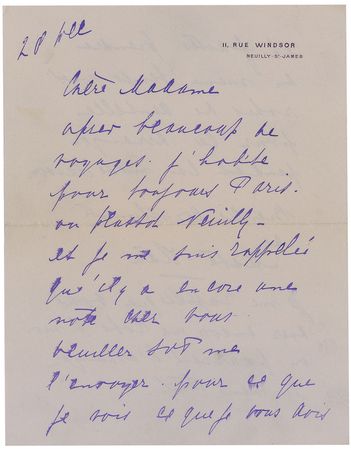 28 Dec
11, RUE WINDSOR
NEUILLY-ST-JAMES
Chère Madame
apres beaucoup de
voyages. j'habite
pour toujours Paris.
ou plustot Neuilly -
et je me suis rappelée
qu'il y a encore une
note cher vous.
veuiller me
l'envoyer. pour ce que
je vois ce que je vous dois